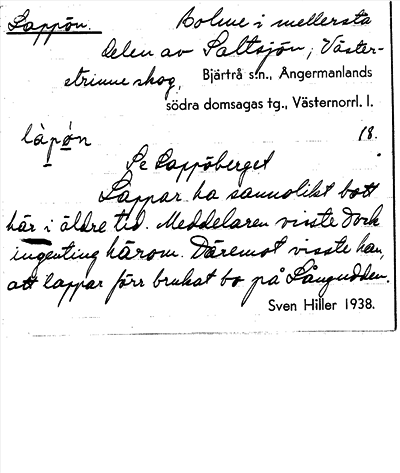 Lappön. Holme i mellersta
delen av Saltsjön, Väster-
strinne skog, Bjärtrå s:n., Ångermanlands
södra domsagas tg., Västernorrl. l.
làpǿn 18.
Se Lappöberget
Lappar ha sannolikt bott
här i äldre tid. Meddelaren visste dock
ingenting härom. Däremot visste han,
att lappar förr brukat bo på Långudden.
Sven Hiller 1938.